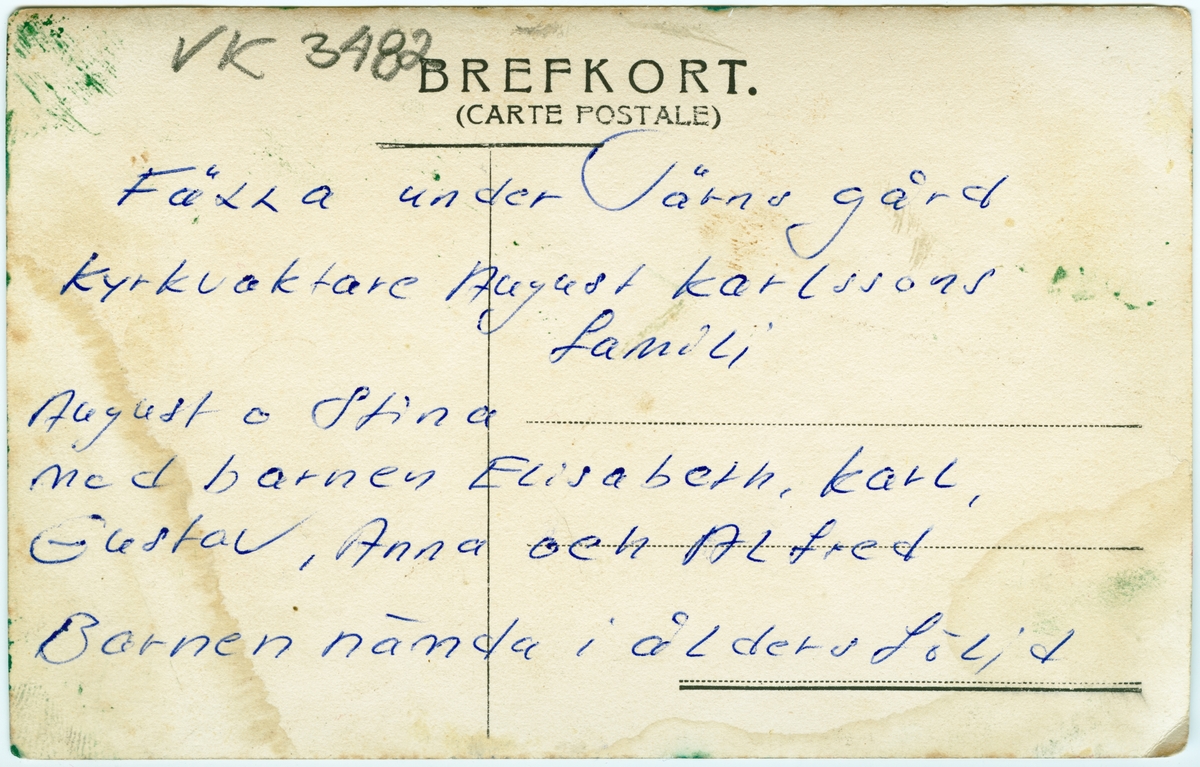 VK 3482
BREFKORT.
(CARTE POSTALE)
Fälla under Järns gård
Kyrkvaktare August Karlssons
familj
August o Stina
med barnen Elisabeth, Karl,
Gustav, Anna och Alfred
Barnen nämda i ålders följd